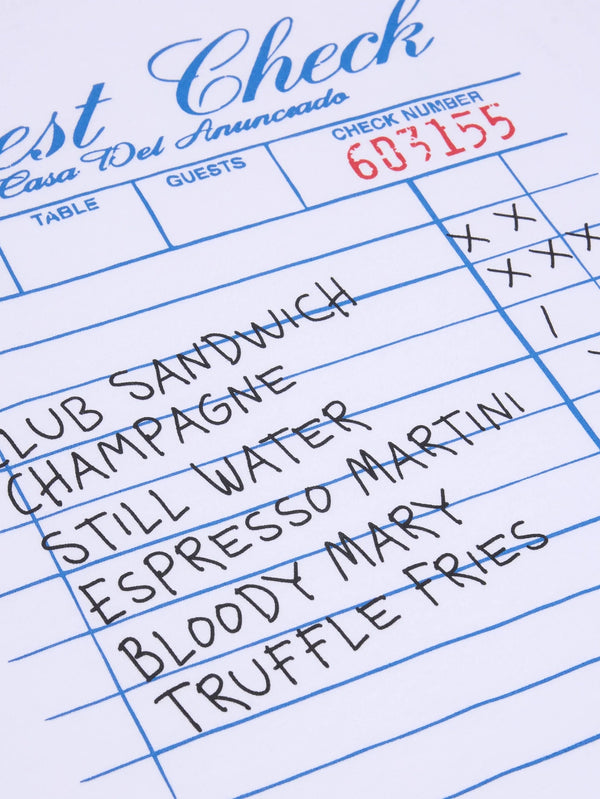 est Check
Casa Del Anunciado
TABLE GUESTS CHECK NUMBER
603155
X X
X X X
LUB SANDWICH
CHAMPAGNE
STILL WATER
ESPRESSO MARTINI
BLOODY MARY
TRUFFLE FRIES